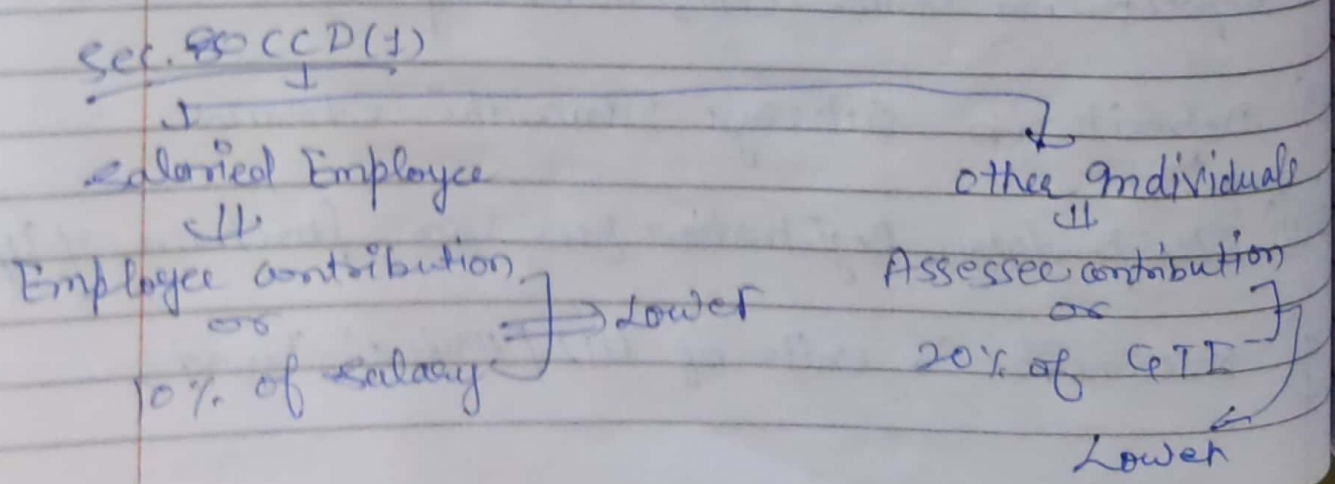 Sec. 80 CCD(1)
Salaried Employee
Employee contribution
or
10% of salary
Lower
Other Individuals
Assessee contribution
or
20% of GTI
Lower